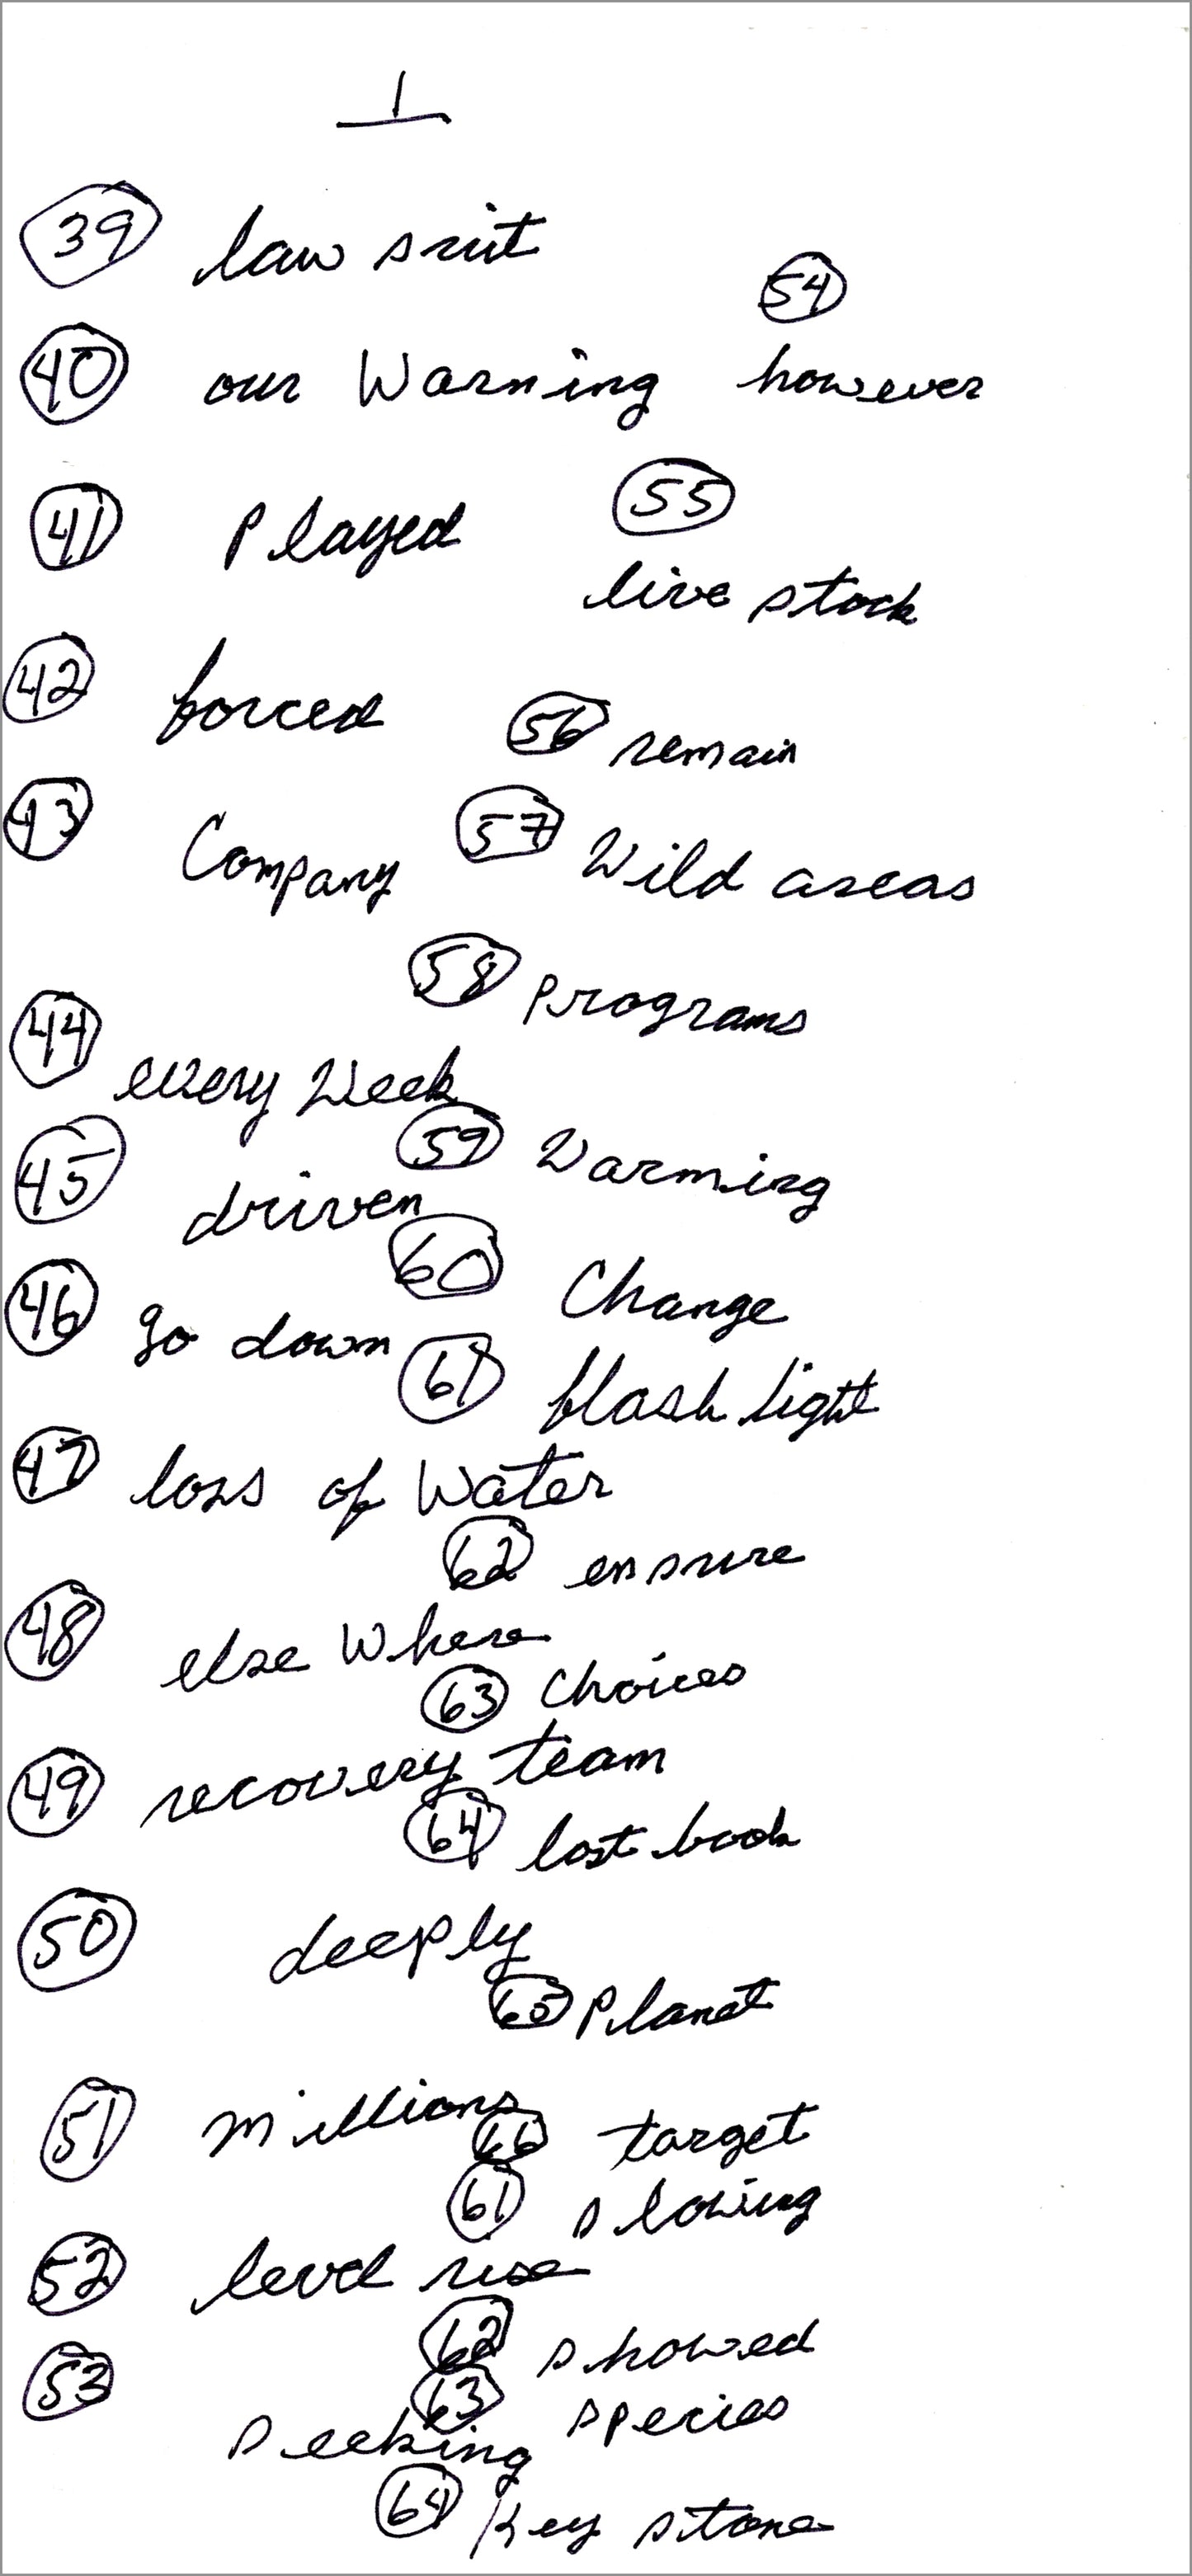 1
39 law suit
54
40 our Warning however
41 Played
55
live stock
42 forced
56 remain
43 Company
57 Wild areas
58 programs
44 every Week
59 Warming
45 driven
60 Change
46 go down
61 flash light
47 loss of Water
62 ensure
48 else Where
63 Choices
49 recovery team
64 lost book
50 deeply
65 Planet
51 Millions
66 target
61 slowing
52 level rise
62 showed
53 seeking
63 species
64 Key stone